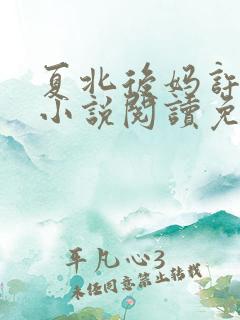 夏北後妈許
小說閱讀免
平凡心3
未经同意禁止转载